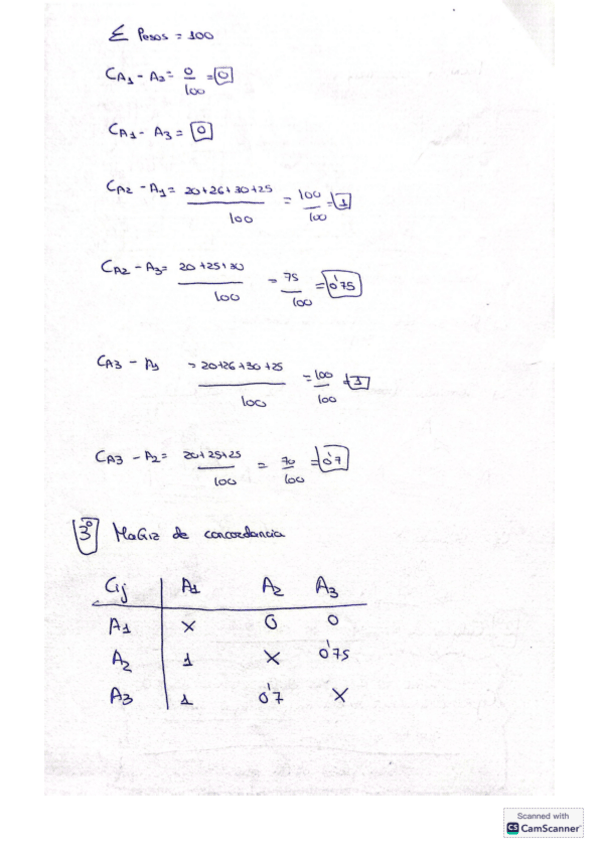 Σ Pesos = 100
CA1 - A2 = 0/100 = 0
CA1 - A3 = 0
CA2 - A1 = 20+26+30+25/100 = 100/100 = 1
CA2 - A3 = 20+25+30/100 = 75/100 = 0'75
CA3 - A1 = 20+26+30+25/100 = 100/100 = 1
CA3 - A2 = 20+25+25/100 = 70/100 = 0'7
3º Matriz de concordancia
Cij A1 A2 A3
A1 X 0 0
A2 1 X 0'75
A3 1 0'7 X
Scanned with
CS CamScanner